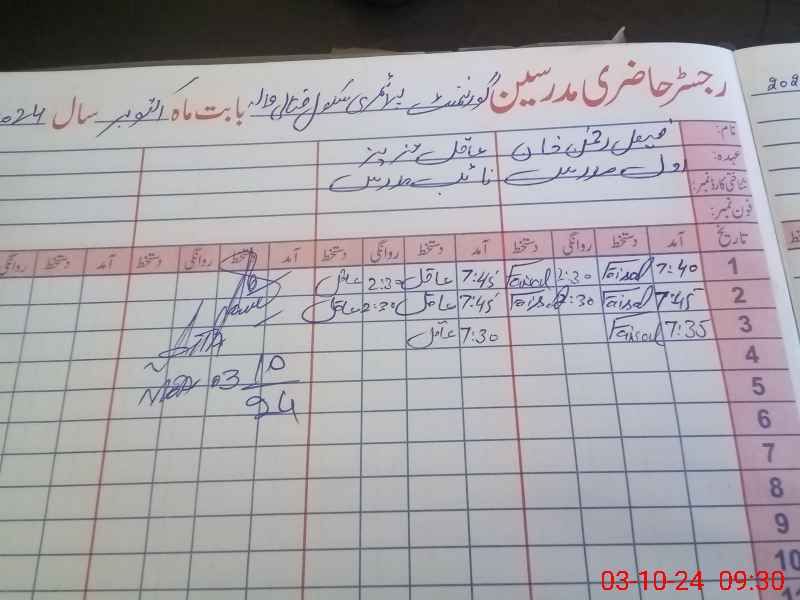 رجسٹر حاضری مدرسین گورنمنٹ پرائمری سکول قتال والہ بابت ماہ اکتوبر سال 2024
نام: فیصل رحمٰن خان عاقل عزیز
عہدہ: اول مدرس نائب مدرس
شناختی کارڈ نمبر:
فون نمبر:
تاریخ آمد دستخط روانگی دستخط آمد دستخط روانگی دستخط آمد دستخط روانگی دستخط آمد دستخط روانگی
1 7:40 Faisal 2:30 Faisal 7:45 عاقل 2:30 عاقل
2 7:45 Faisal 2:30 Faisal 7:45 عاقل 2:30 عاقل
3 7:35 Faisal 7:30 عاقل
4
5
6
7
8
9
10
03 10
24
202
03-10-24 09:30